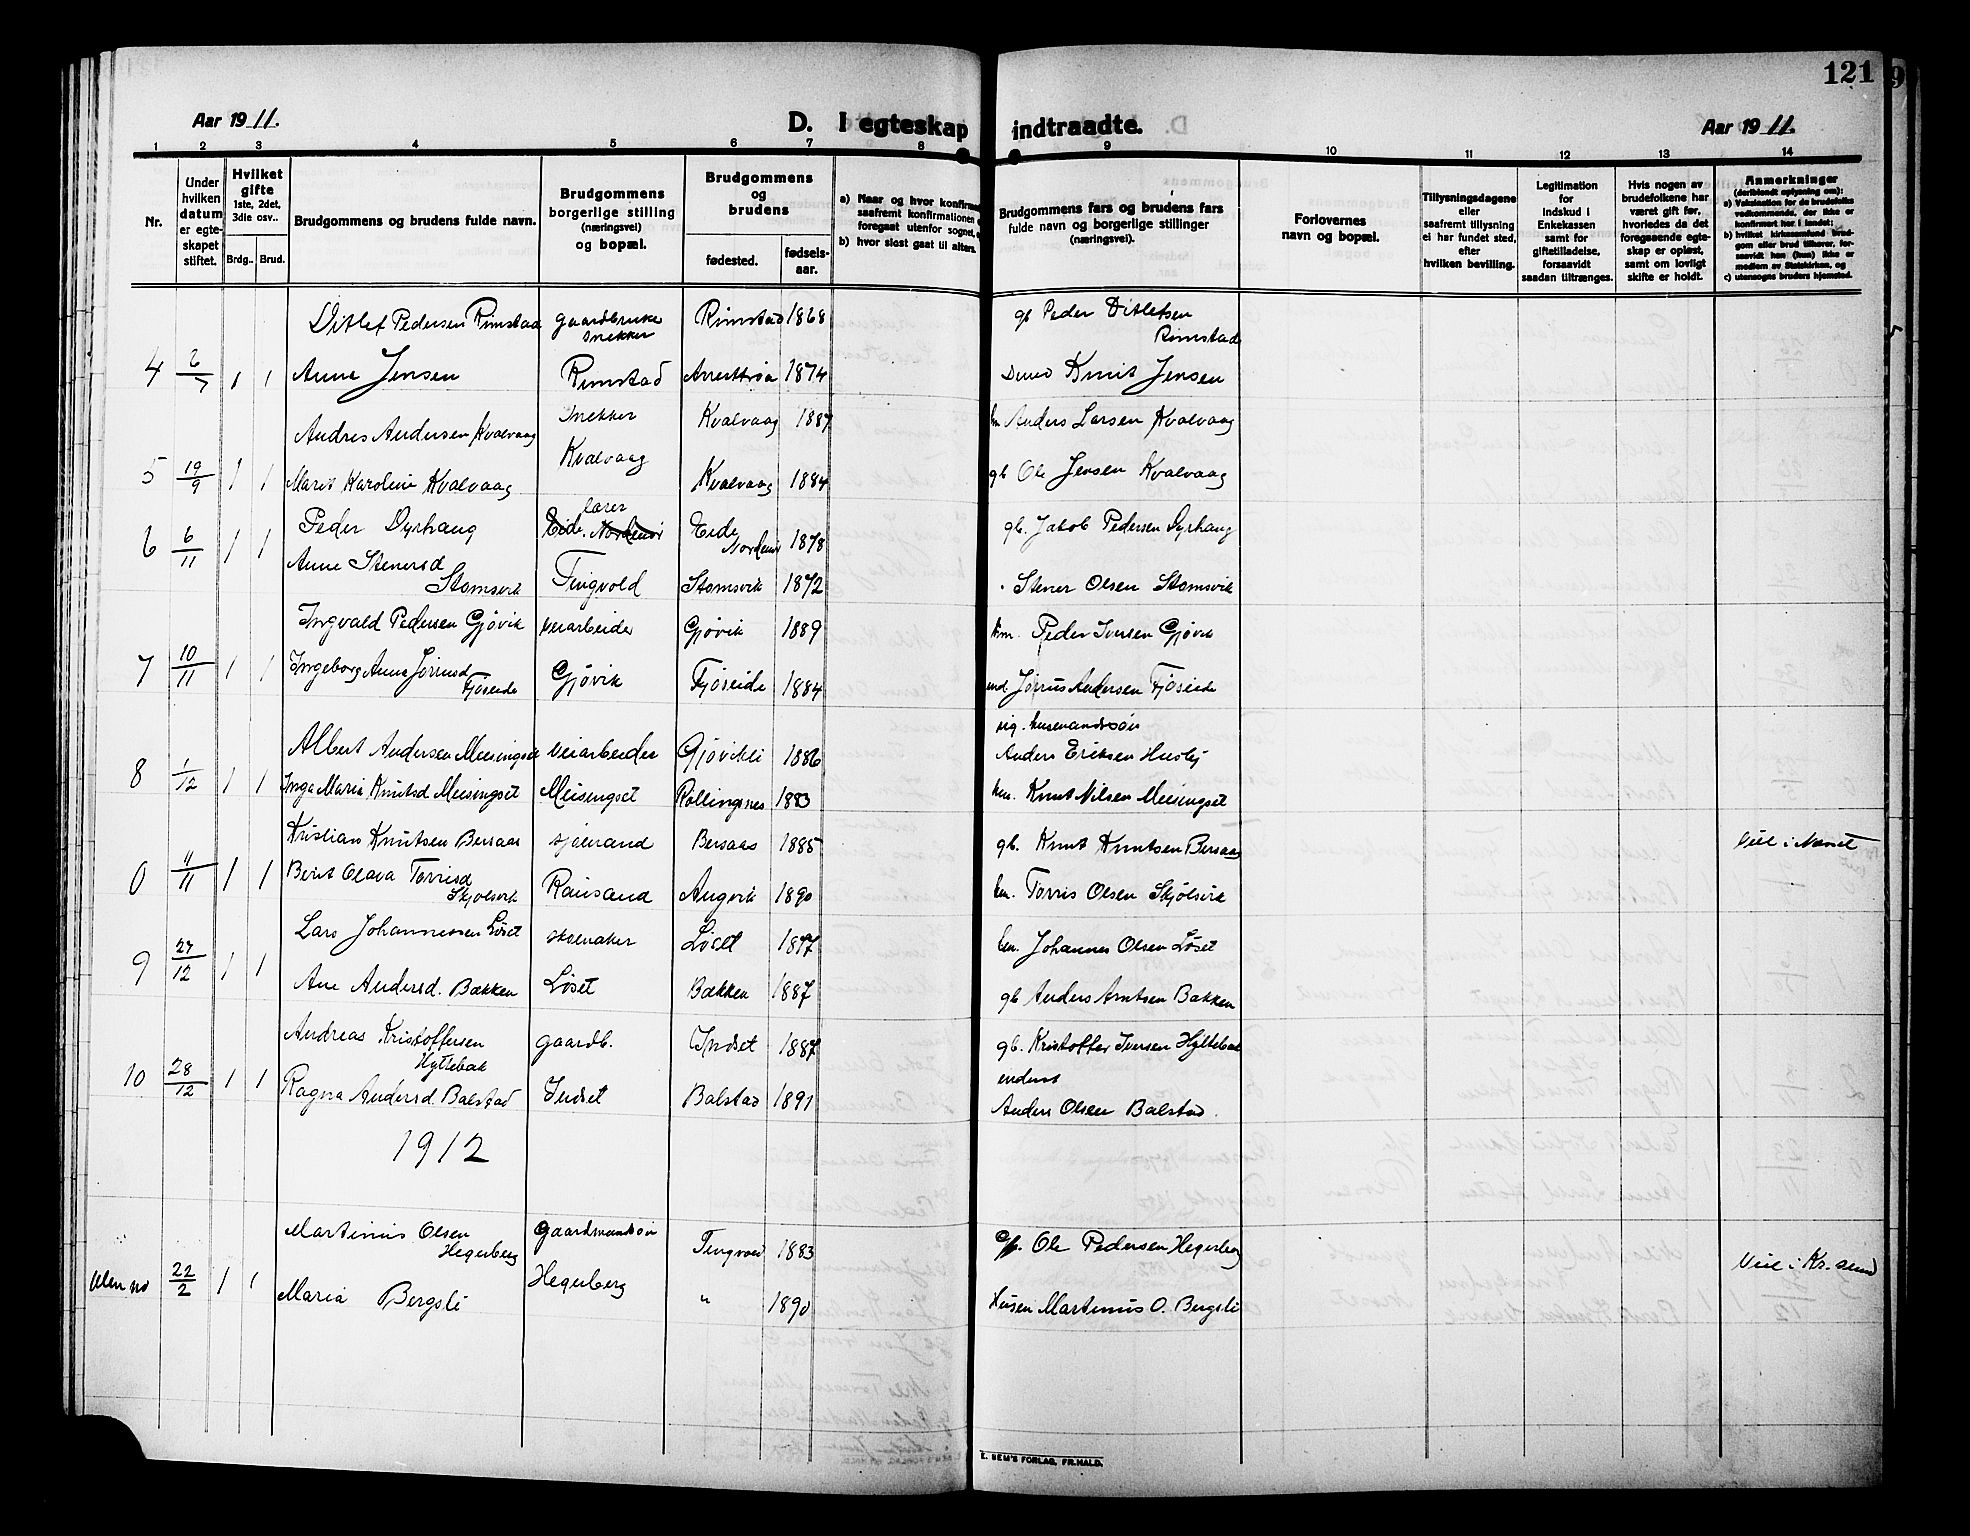 121
Aar 1911.
D. I egteskap indtraadte.
Aar 1911.
1 2 3 4 5 6 7 8 9 10 11 12 13 14
Nr.
Under hvilken datum er egteskapet stiftet.
Hvilket gifte 1ste, 2det, 3die osv..
Brdg.. Brud.
Brudgommens og brudens fulde navn.
Brudgommens borgerlige stilling (næringsvei) og bopæl.
Brudgommens og brudens
fødested. fødsels-aar.
a) Naar og hvor konfirm
saafremt konfirmationen
foregaat utenfor sognet,
b) hvor sidst gaat til alters.
Brudgommens fars og brudens fars fulde navn og borgerlige stillinger (næringsvei).
Forlovernes navn og bopæl.
Tillysningsdagene eller saafremt tillysning ei har fundet sted, efter hvilken bevilling.
Legitimation for indskud i Enkekassen samt for giftetilladelse, forsaavidt saadan tiltrænges.
Hvis nogen av brudefolkene har været gift før, hvorledes da det foregaaende egteskap er opløst, samt om lovligt skifte er holdt.
Anmerkninger (deriblandt oplysning om): a) Vaksination for de brudefolks vedkommende, der ikke er konfirmert her i landet; b) hvilket kirkesamfund brudgom eller brud tilhører, forsaavidt han (hun) ikke er medlem av Statskirken, og c) utensogns bruders hjemsted.
Ditlef Pedersen Rimstad gaardbruker snekker Rimstad 1868 gb Peder Ditlefsen Rimstad
4 2/7 1 1 Anne Jensen Rimstad 1874 Knut Jensen
Andres Andersen Kvalvaag Snekker Kvalvaag 1887 Anders Larsen Kvalvaag
5 19/9 1 1 Marit Karoline Kvalvaag Kvalvaag Kvalvaag 1884 gb Ole Jensen Kvalvaag
Peder Dyrhaug lærer Eide. Nordmør Eide Nordmør 1878 gb. Jakob Pedersen Dyrhaug
6 6/11 1 1 Anne Stenersd Stomsvik Tingvold Stomsvik 1872 Stener Olsen Stomsvik
Ingvald Pedersen Gjøvik veiarbeider Gjøvik 1889 hm. Peder Iversen Gjøvik
7 10/11 1 1 Ingeborg Anne Jørrisd Fjøseide Gjøvik Fjøseide 1884 Jørris Andersen Fjøseide
Albert Andersen Meisingset veiarbeider Gjøvikli 1886 husmandssøn Anders Eriksen Husby
8 1/12 1 1 Inga Maria Knutsd Meisingset Meisingset Rollingsnes 1883 hm. Knut Nilsen Meisingset
Kristian Knutsen Bersaas sjømand Bersaas 1885 gb. Knut Knutsen Bersaas Viel i Nesset
0 11/11 1 1 Berit Olava Torrisd Skjølsvik Rausand Angvik 1890 hm. Torris Olsen Skjølsvik
Lars Johannessen Løset skomaker Løset hm. Johannes Olsen Løset
9 27/12 1 1 Ane Andersd. Bakken Løset Bakken 1887 gb Anders Arntsen Bakken
Andreas Kristoffersen Hyltebak gaardb. Indset 1887 gb. Kristoffer Iversen Hyltebak
10 28/12 1 1 Ragna Andersd. Balstad Indset Balstad 1891 Anders Olsen Balstad.
1912
Martinus Olsen Hegerberg gaardmandssøn Tingvold 1883 Ole Pedersen Hegerberg Viet i Kr.sund
Uten no 22/2 1 1 Maria Bergsli Hegerberg " 1890 Husm Martinus O. Bergsli
E. SEM'S FORLAG, FR.HALD.